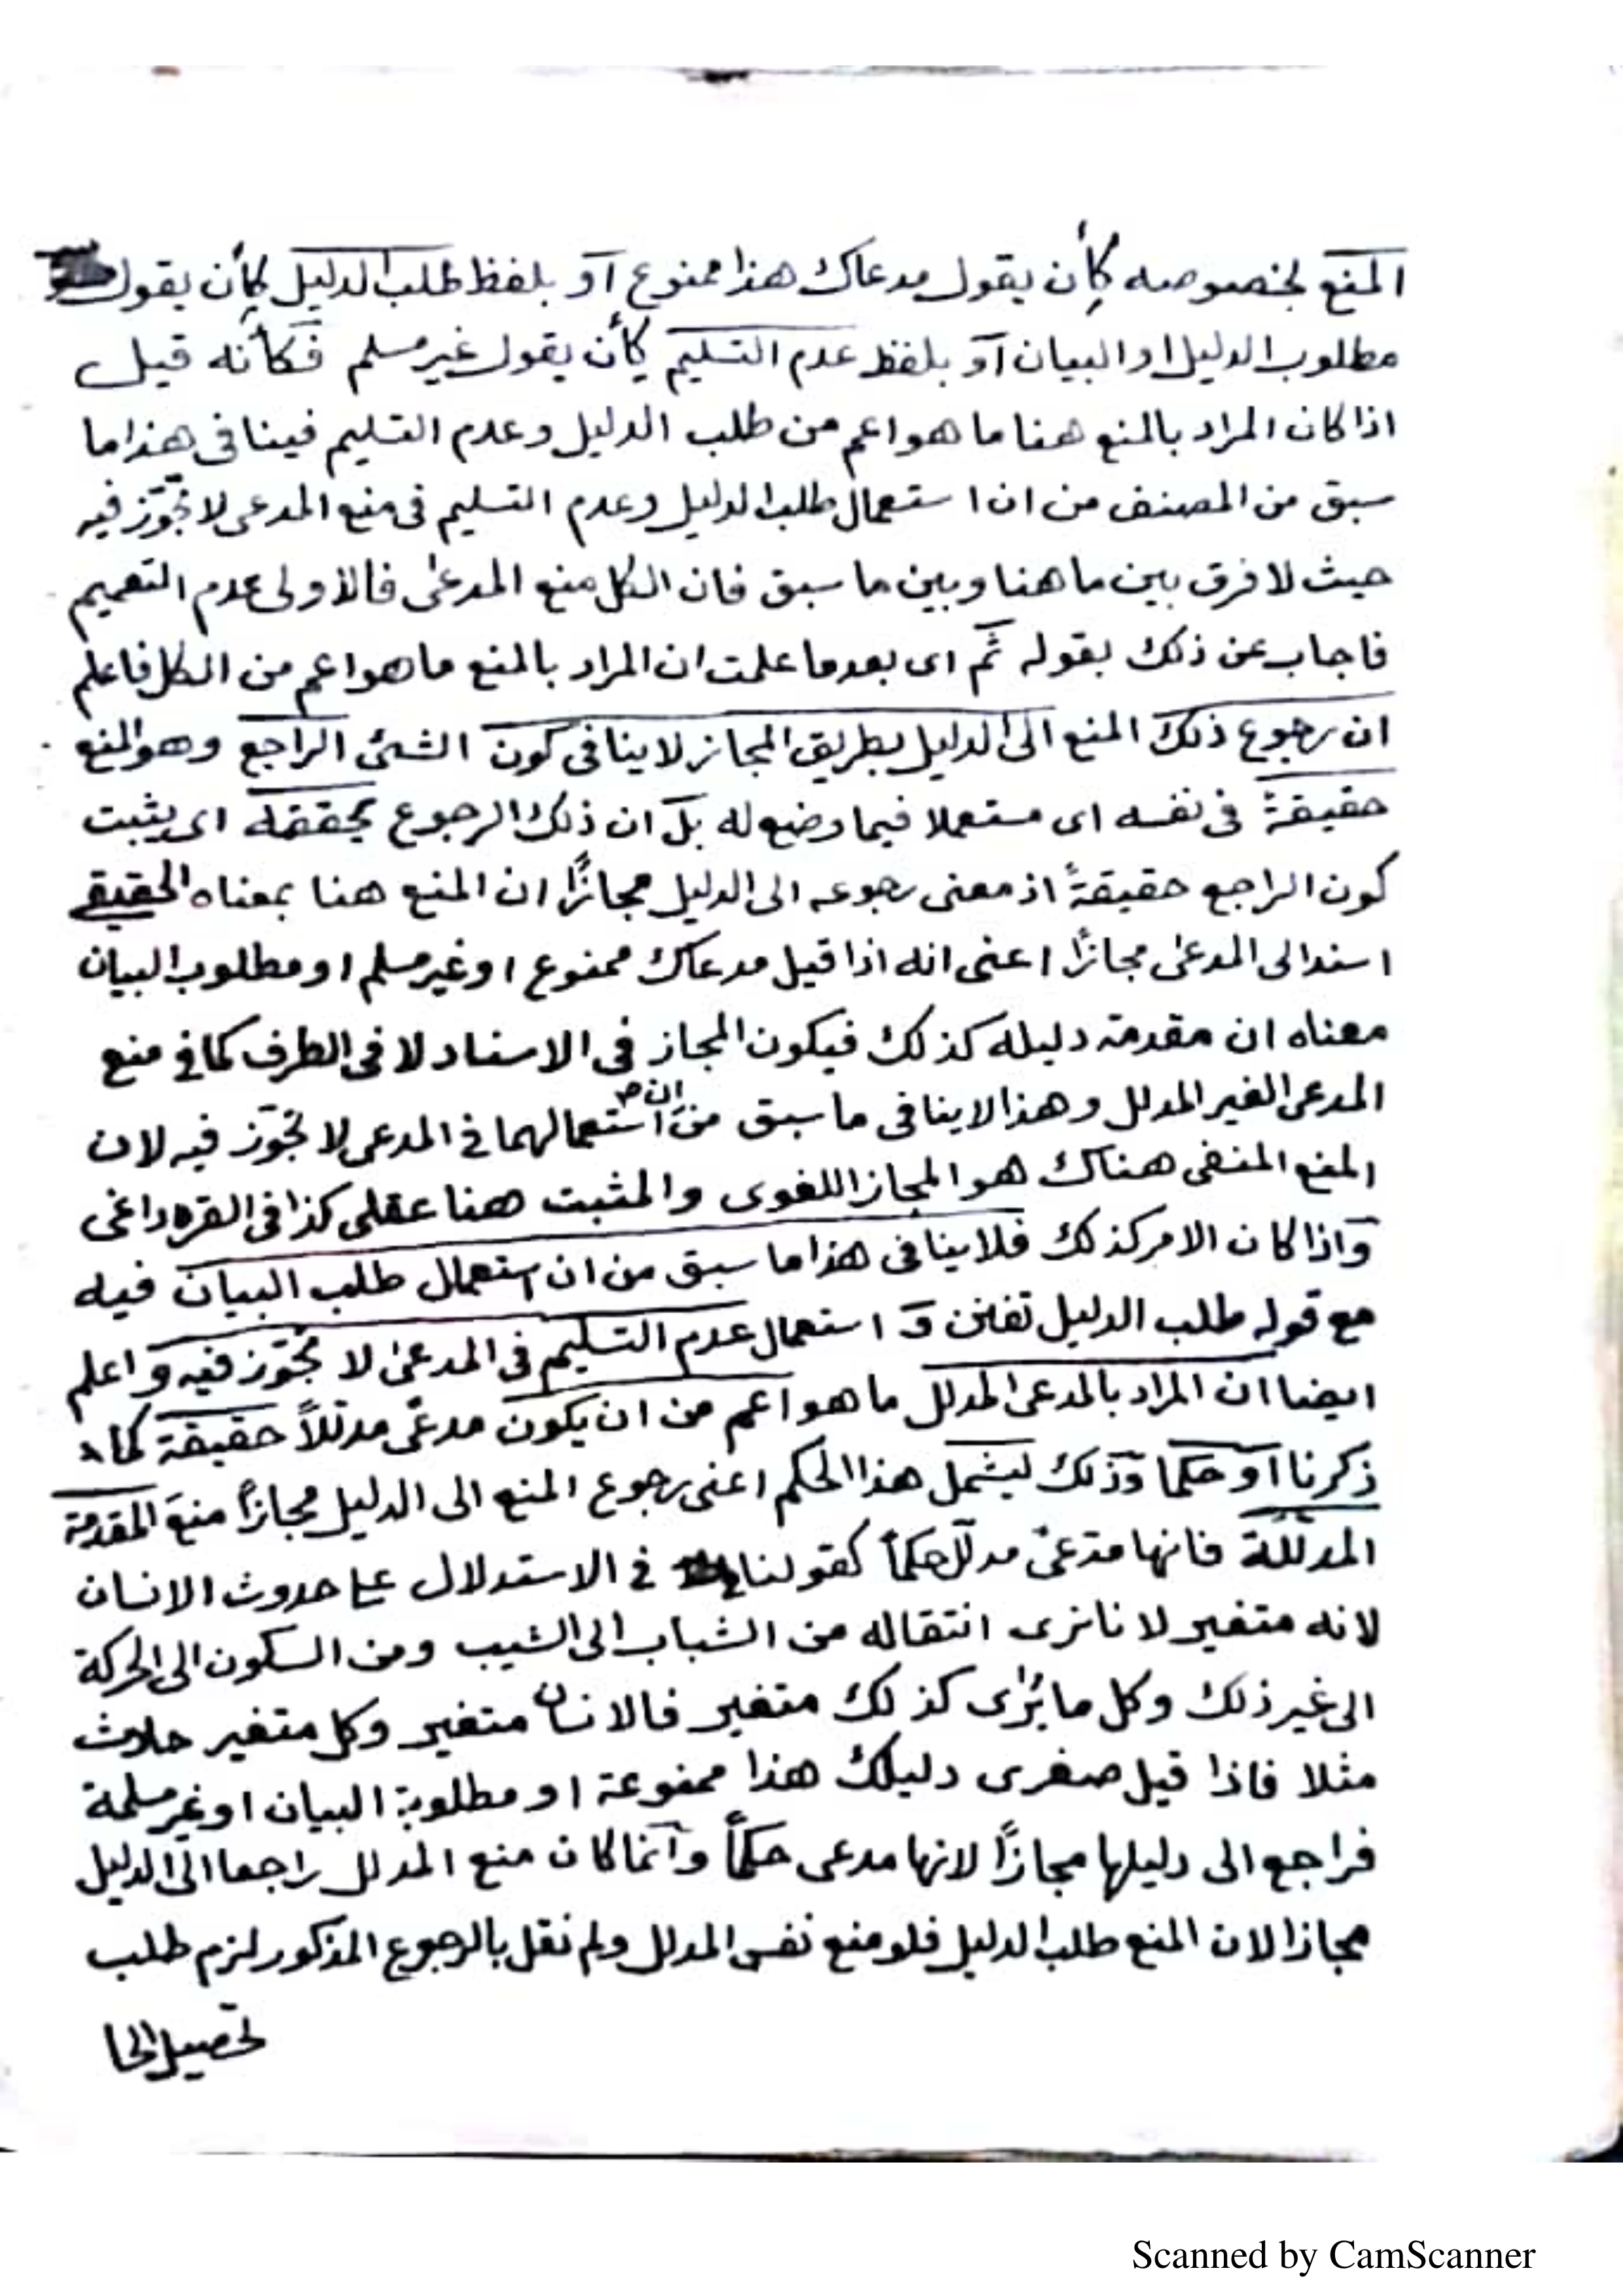 المنع لخصوصه كأن يقول مدعاك هذا ممنوع أو بلفظ طلب الدليل كأن يقول
مطلوب الدليل او البيان أو بلفظ عدم التسليم كأن يقول غير مسلم فكأنه قيل
اذا كان المراد بالمنع هنا ما هو اعم من طلب الدليل وعدم التسليم فينافى هذا ما
سبق من المصنف من ان استعمال طلب الدليل وعدم التسليم فى منع المدعى لا تجوّز فيه
حيث لا فرق بين ما هنا وبين ما سبق فان الكل منع المدعى فالاولى عدم التعميم
فاجاب عن ذلك بقوله ثم اى بعد ما علمت ان المراد بالمنع ما هو اعم من الكل فاعلم
ان رجوع ذلك المنع الى الدليل بطريق المجاز لا ينافى كون الشئ الراجع وهو المنع
حقيقةً فى نفسه اى مستعملا فيما وضع له بل ان ذلك الرجوع يحققه اى يثبت
كون الراجع حقيقةً اذ معنى رجوعه الى الدليل مجازًا ان المنع هنا بمعناه الحقيقي
اسند الى المدعى مجازًا اعنى انه اذا قيل مدعاك ممنوع او غير مسلم او مطلوب البيان
معناه ان مقدمة دليله كذلك فيكون المجاز فى الاسناد لا فى الطرف كما فى منع
المدعى الغير المدلل وهذا لا ينافى ما سبق من ان استعمالهما فى المدعى لا تجوّز فيه لان
المنع المنفى هناك هو المجاز اللغوى والمثبت هنا عقلى كذا فى القره داغى
واذا كان الامر كذلك فلا ينافى هذا ما سبق من ان استعمال طلب البيان فيه
مع قوله طلب الدليل تفنن و استعمال عدم التسليم فى المدعى لا تجوّز فيه واعلم
ايضا ان المراد بالمدعى المدلل ما هو اعم من ان يكون مدعًى مدللاً حقيقة كما
ذكرنا أو حكما وذلك ليشمل هذا الحكم اعنى رجوع المنع الى الدليل مجازاً منعَ المقدمة
المدللة فانها مدعىً مدلل حكماً كقولنا فى الاستدلال على حدوث الانسان
لانه متغير لانا نرى انتقاله من الشباب الى الشيب ومن السكون الى الحركة
الى غير ذلك وكل ما يُرى كذلك متغير فالانسان متغير وكل متغير حادث
مثلا فاذا قيل صغرى دليلك هذا ممنوعة او مطلوبة البيان او غير مسلمة
فراجع الى دليلها مجازاً لانها مدعى حكماً وانما كان منع المدلل راجعا الى الدليل
مجازا لان المنع طلب الدليل فلو منع نفس المدلل ولم نقل بالرجوع المذكور لزم طلب
تحصيل الحا
Scanned by CamScanner